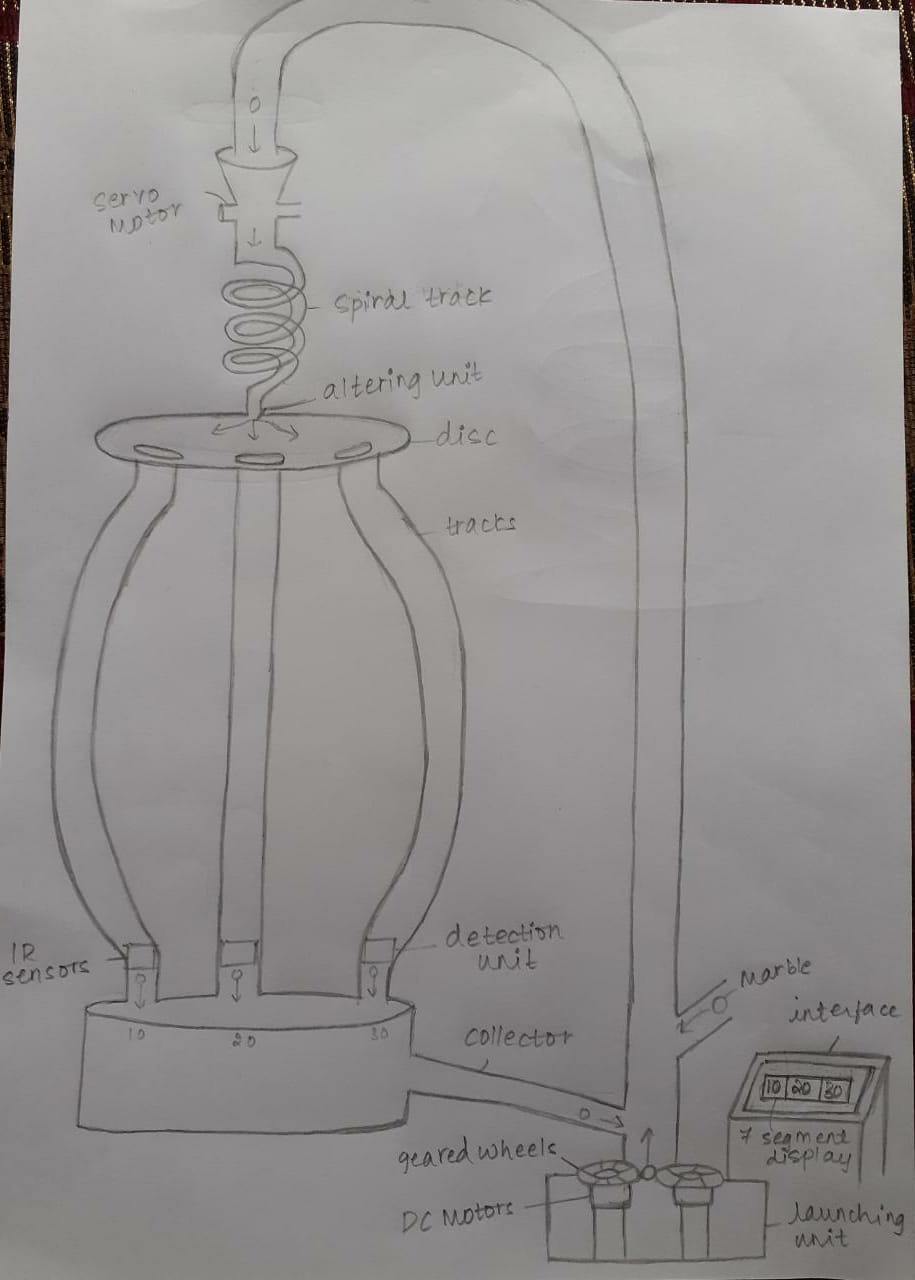 servo
Motor
spiral track
altering unit
disc
tracks
IR
sensors
detection
unit
10
20
30
collector
Marble
interface
10 20 30
7 segment
display
geared wheels
DC Motors
launching
unit